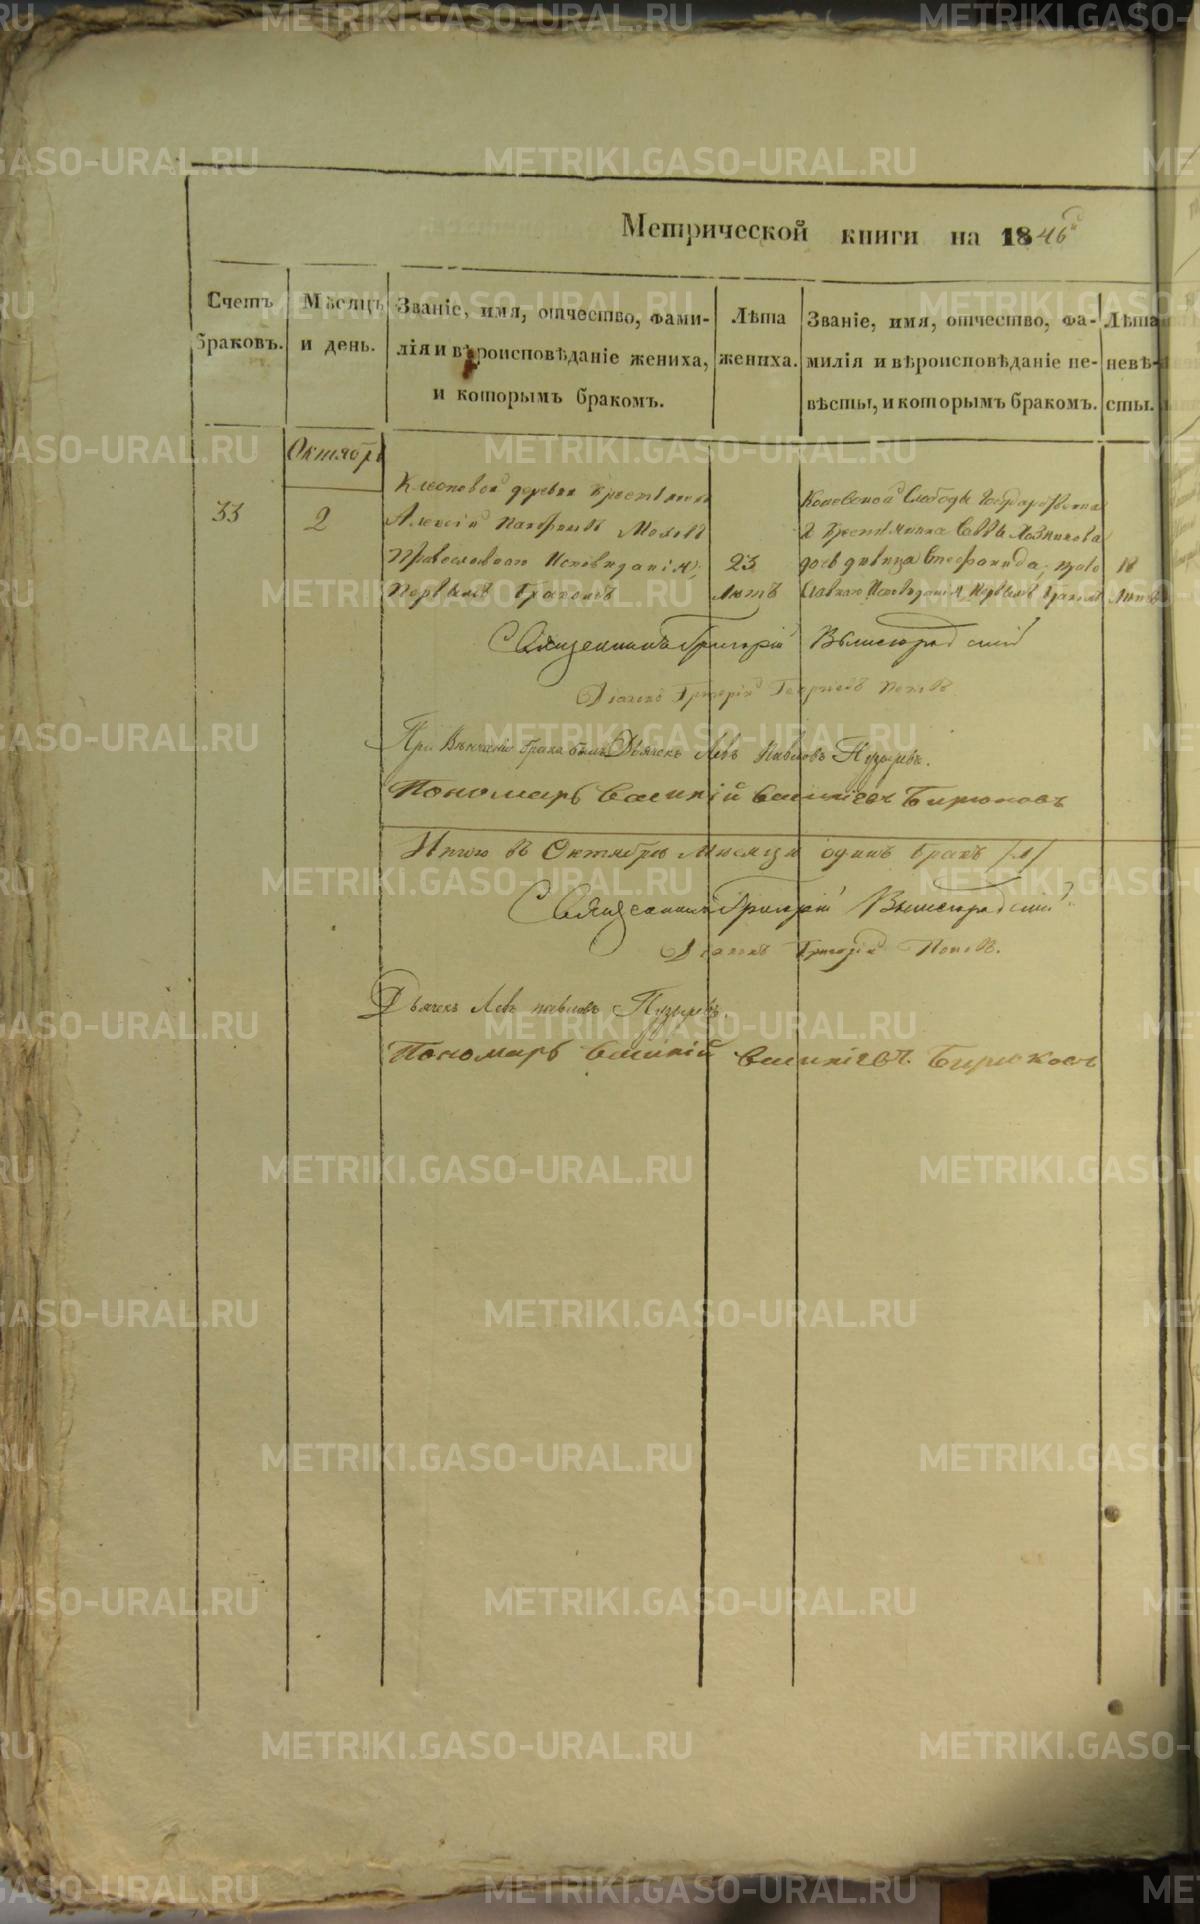 METRIKI.GASO-URAL.RU
Метрической книги на 1846
Счетъ браковъ.
Мѣсяцъ и день.
Званіе, имя, отчество, фами-
лія и вѣроисповѣданіе жениха,
и которымъ бракомъ.
Лѣта
жениха.
Званіе, имя, отчество, фа-
милія и вѣроисповѣданіе не-
вѣсты, и которымъ бракомъ.
Лѣта
невѣ-
сты.
Октябрь
33
2
деревни
Алексій
Православнаго Исповѣданія,
Первымъ Бракомъ
23
Лѣтъ
Слободы
Саввы
дочь дѣвица Стефанида, право
славнаго Исповѣданія Первымъ Бракомъ
18
Лѣтъ
Священникъ Григорій Вышегородскій
Діаконъ Григорій Георгіевъ Поповъ
При Вѣнчаніи брака былъ Дьячекъ Левъ Павловъ Пузыревъ.
Пономарь Василій Василіевъ Бирюковъ
Итого въ Октябрѣ Мѣсяцѣ одинъ бракъ /1/
Священникъ Григорій Вышегородскій
Діаконъ Григорій Поповъ.
Дьячекъ Левъ павловъ Пузыревъ.
Пономарь Василій Василіевъ Бирюковъ